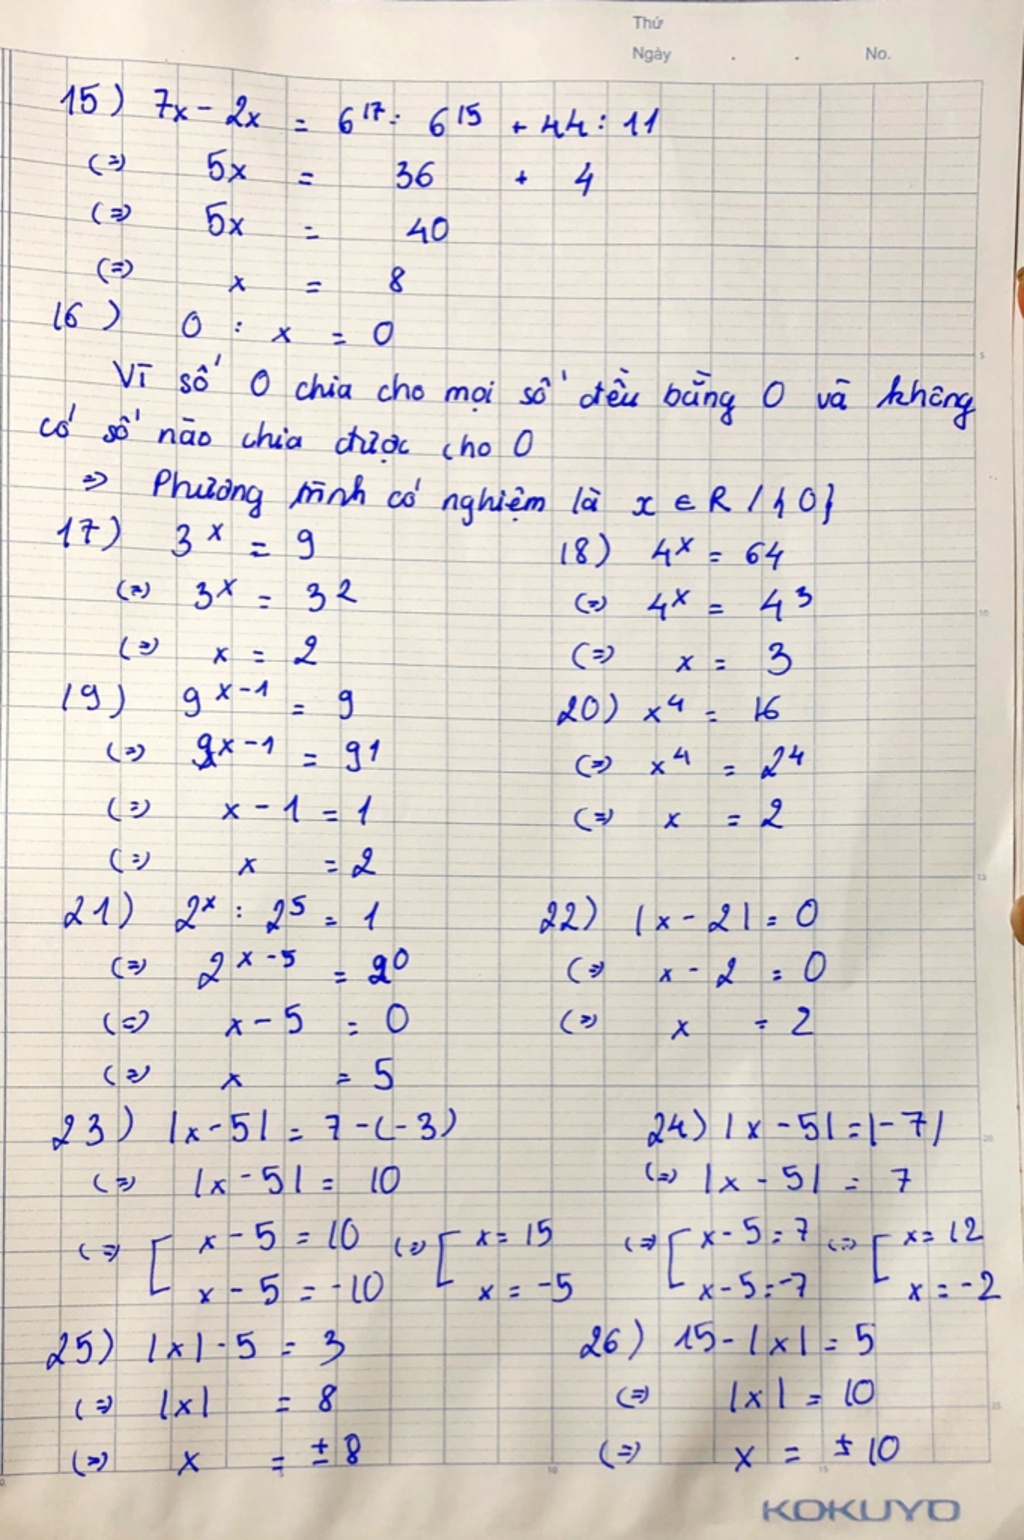 Thứ
Ngày . . No.
15) 7x - 2x = 6¹⁷ : 6¹⁵ + 44 : 11
(=) 5x = 36 + 4
(=) 5x = 40
(=) x = 8
16) 0 : x = 0
Vì số 0 chia cho mọi số đều bằng 0 và không
có số nào chia được cho 0
=> Phương trình có nghiệm là x ∈ R / {0}
17) 3ˣ = 9
(=) 3ˣ = 3²
(=) x = 2
18) 4ˣ = 64
(=) 4ˣ = 4³
(=) x = 3
19) 9ˣ⁻¹ = 9
(=) 9ˣ⁻¹ = 9¹
(=) x - 1 = 1
(=) x = 2
20) x⁴ = 16
(=) x⁴ = 2⁴
(=) x = 2
21) 2ˣ : 2⁵ = 1
(=) 2ˣ⁻⁵ = 2⁰
(=) x - 5 = 0
(=) x = 5
22) |x - 2| = 0
(=) x - 2 = 0
(=) x = 2
23) |x - 5| = 7 - (-3)
(=) |x - 5| = 10
(=) [ x - 5 = 10 (=) [ x = 15
x - 5 = -10 x = -5
24) |x - 5| = |-7|
(=) |x - 5| = 7
(=) [ x - 5 = 7 (=) [ x = 12
x - 5 = -7 x = -2
25) |x| - 5 = 3
(=) |x| = 8
(=) x = ±8
26) 15 - |x| = 5
(=) |x| = 10
(=) x = ±10
KOKUYO